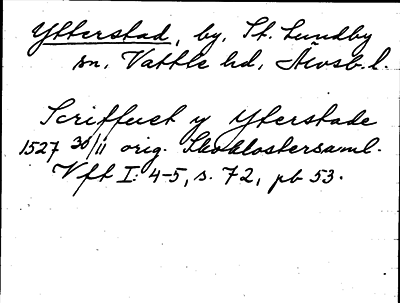 Ytterstad, by, St. Lundby
sn, Vättle hd, Älvsb. l.
Scriffuet y Yterstade
1527 30/11 orig. Skoklostersaml.
Vft I: 4-5, s. 72, pb 53.